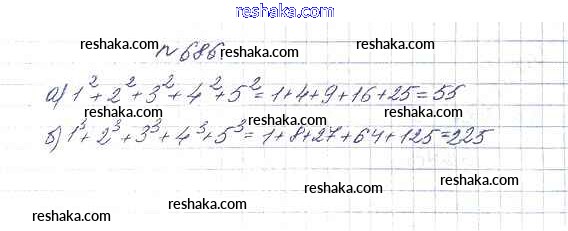 reshaka.com
reshaka.com №686. reshaka.com
а) 1² + 2² + 3² + 4² + 5² = 1+4+9+16+25 = 55
reshaka.com reshaka.com reshaka.com
б) 1³ + 2³ + 3³ + 4³ + 5³ = 1+8+27+64+125=225
reshaka.com reshaka.com
reshaka.com reshaka.com